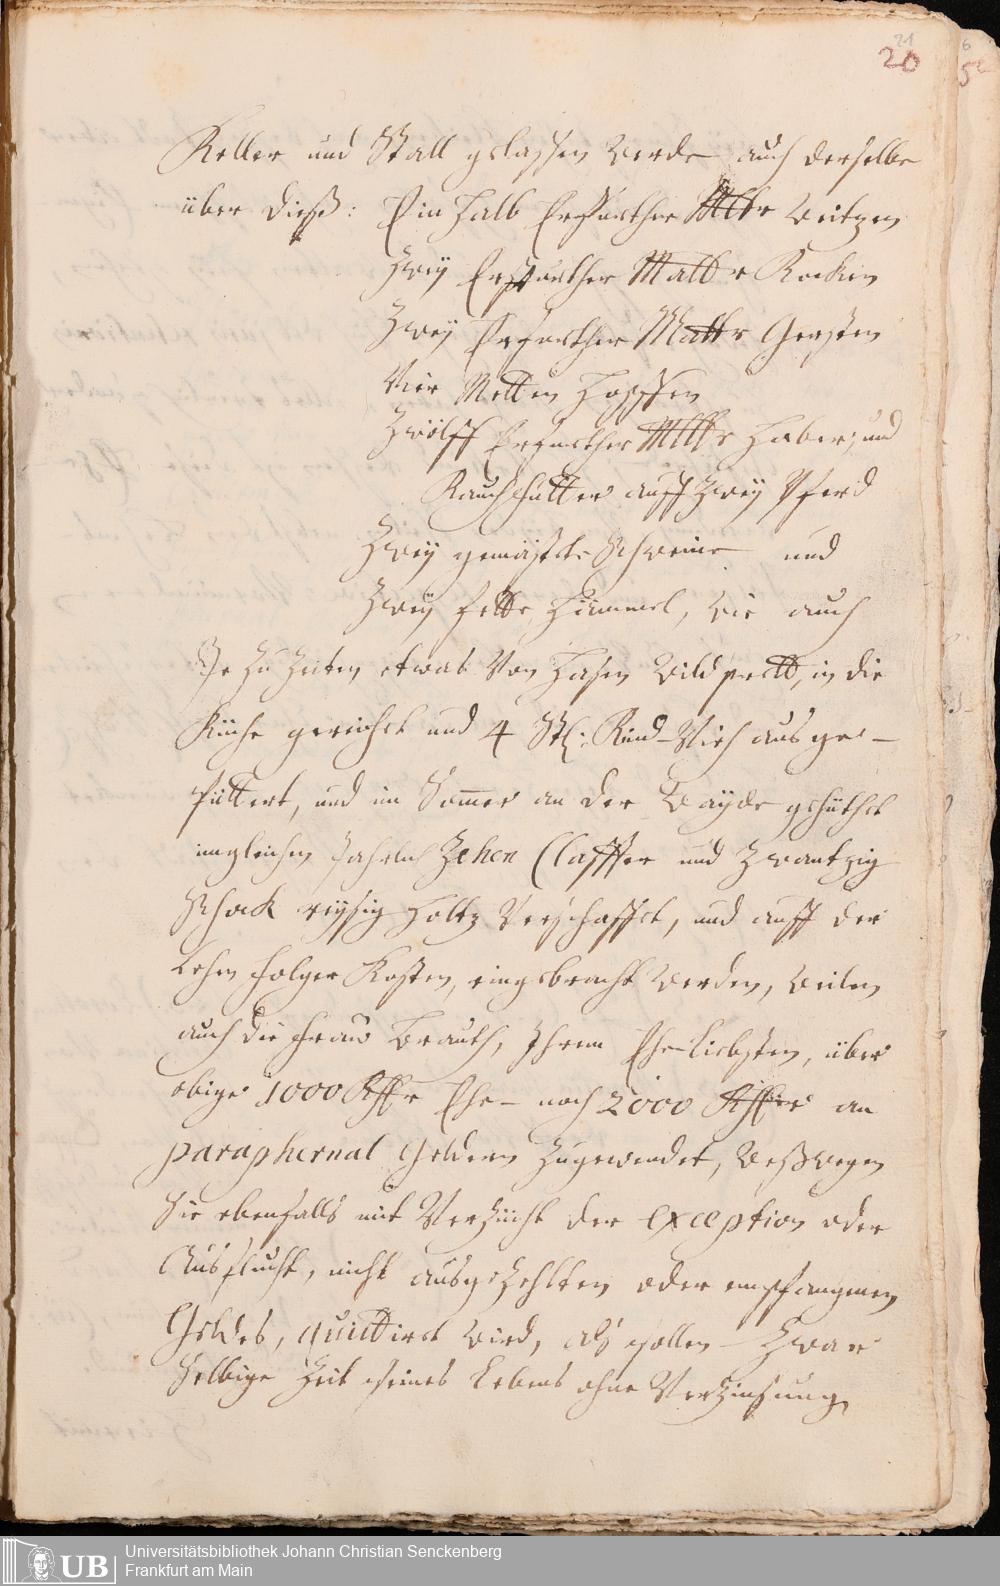 21
20
6
5
Keller und Stall gelassen werde auch derselbe
über dieß: Ein halb Erfurther Mltr weitzen
Zwey Erffurther Maltr Rocken
Zwey Erfurther Maltr Gersten
Vier Metten Hopffen
Zwölff Erfurther Mltr Haber, und
Rauchfutter auff Zwey Pferd
Zwey gemäste Schweine und
Zwey fette Hämmel, wie auch
Je zu Zeiten etwas Von Hasen wildprett, in die
Küche gereicht und 4 Stk: Rind-Vieh ausge-
füttert, und im Somer an der Wayde gehüthet
imgleichen Jahrlich Zehen Claffter und Zwantzig
Schock reyßig Holtz Verschaffet, und auff der
Lehen folger Kosten, eingebracht werden, weilen
auch die Frau Brauth, Ihrem Ehe-liebsten, über
obige 1000 Rthlr Ehe- noch 2000 Rthlr an
paraphernal Geldern Zugewendet, weßwegen
Sie ebenfalls mit Verzicht der exception oder
Ausflucht, nicht ausgezehlten oder empfangenen
Geldes, quittiret wird, als sollen Zwar
Selbige Zeit seines Lebens ohne Verzinsung
UB
Universitätsbibliothek Johann Christian Senckenberg
Frankfurt am Main